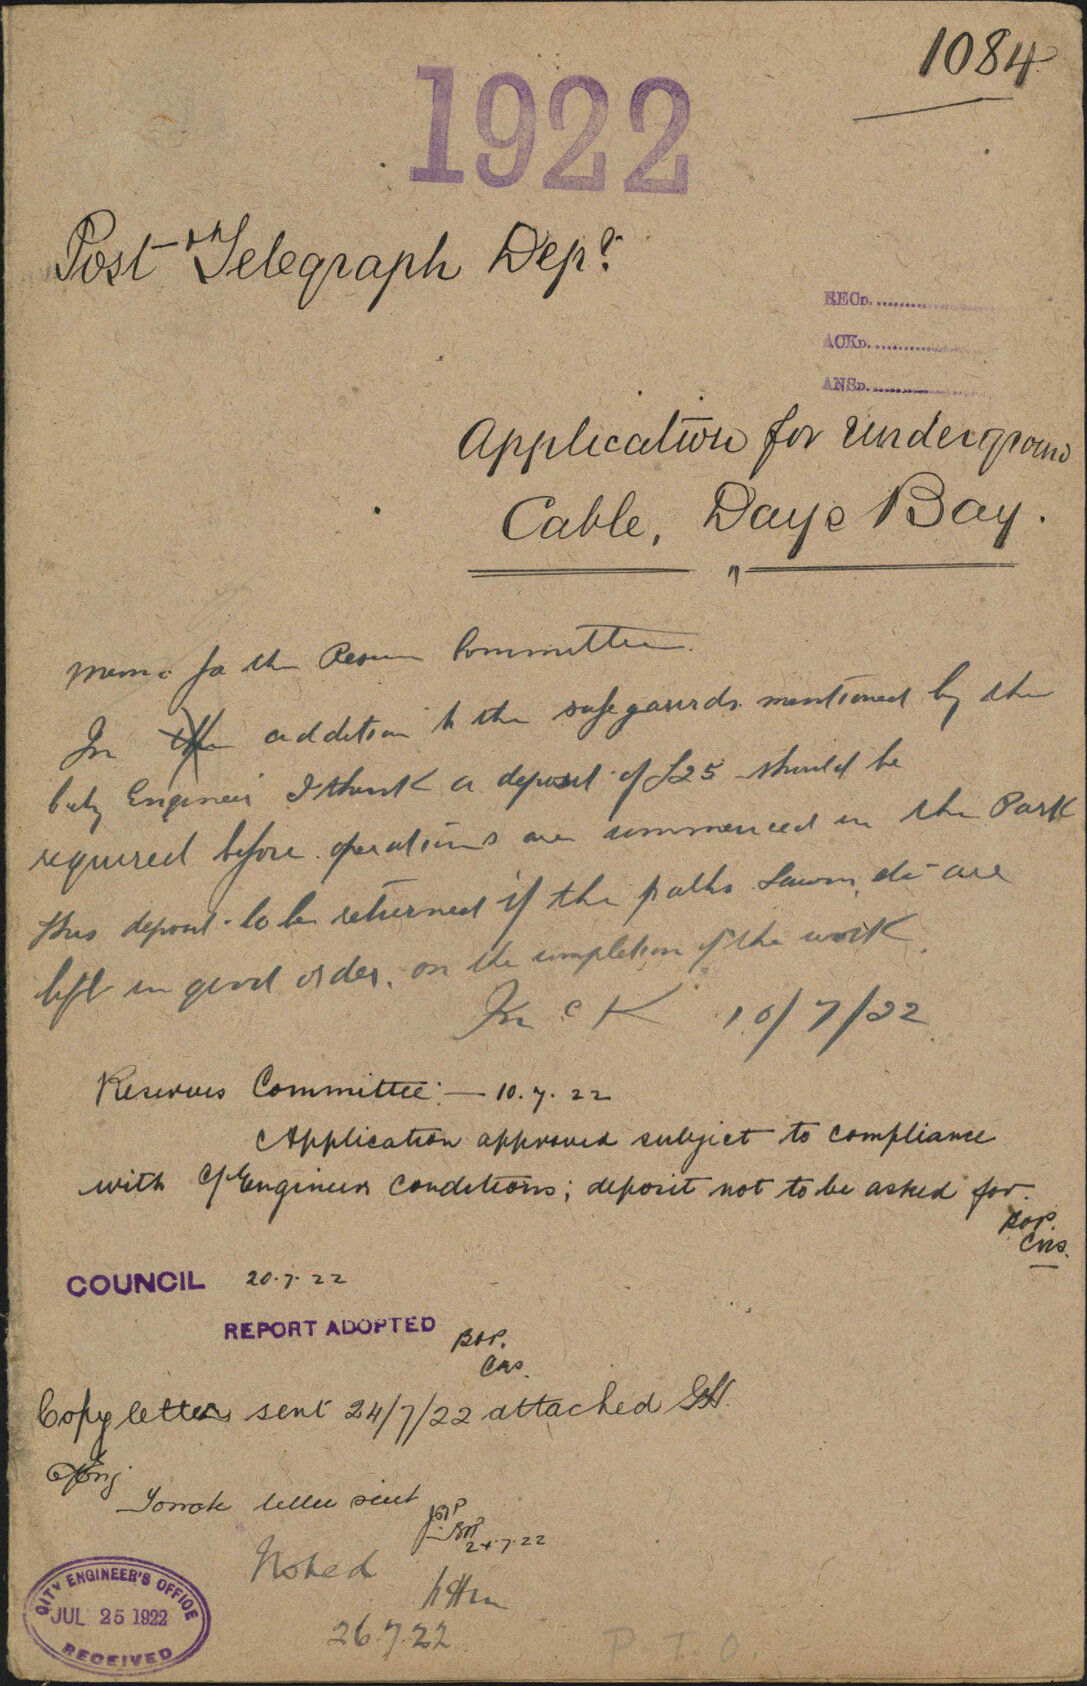 1084
1922
Post & Telegraph Dept.
RECD.
ACKD.
ANSD.
Application for Underground
Cable, Days Bay.
Memo for the Reserves Committee.
In the addition to the safegaurds mentioned by the
City Engineer I think a deposit of £25 should be
required before operations are commenced in the Park
this deposit to be returned if the paths Lawns, etc are
left in good order, on the completion of the work.
10/7/22
Reserves Committee:— 10.7.22
Application approved subject to compliance
with C/Engineers conditions; deposit not to be asked for.
BOP.
COUNCIL 20.7.22
REPORT ADOPTED
BOP.
Copy letters sent 24/7/22 attached
C/Eng
To note letter sent
24.7.22
Noted
26.7.22
CITY ENGINEER'S OFFICE
JUL 25 1922
RECEIVED
P.T.O.